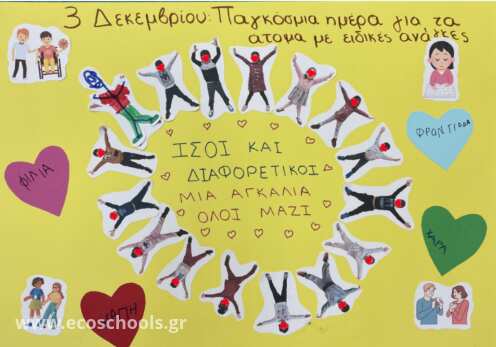 3 Δεκεμβρίου: Παγκόσμια ημέρα για τα
άτομα με ειδικές ανάγκες
ΙΣΟΙ ΚΑΙ
ΔΙΑΦΟΡΕΤΙΚΟΙ
ΜΙΑ ΑΓΚΑΛΙΑ
ΟΛΟΙ ΜΑΖΙ
ΦΙΛΙΑ
ΦΡΟΝΤΙΔΑ
ΧΑΡΑ
www.ecoschools.gr